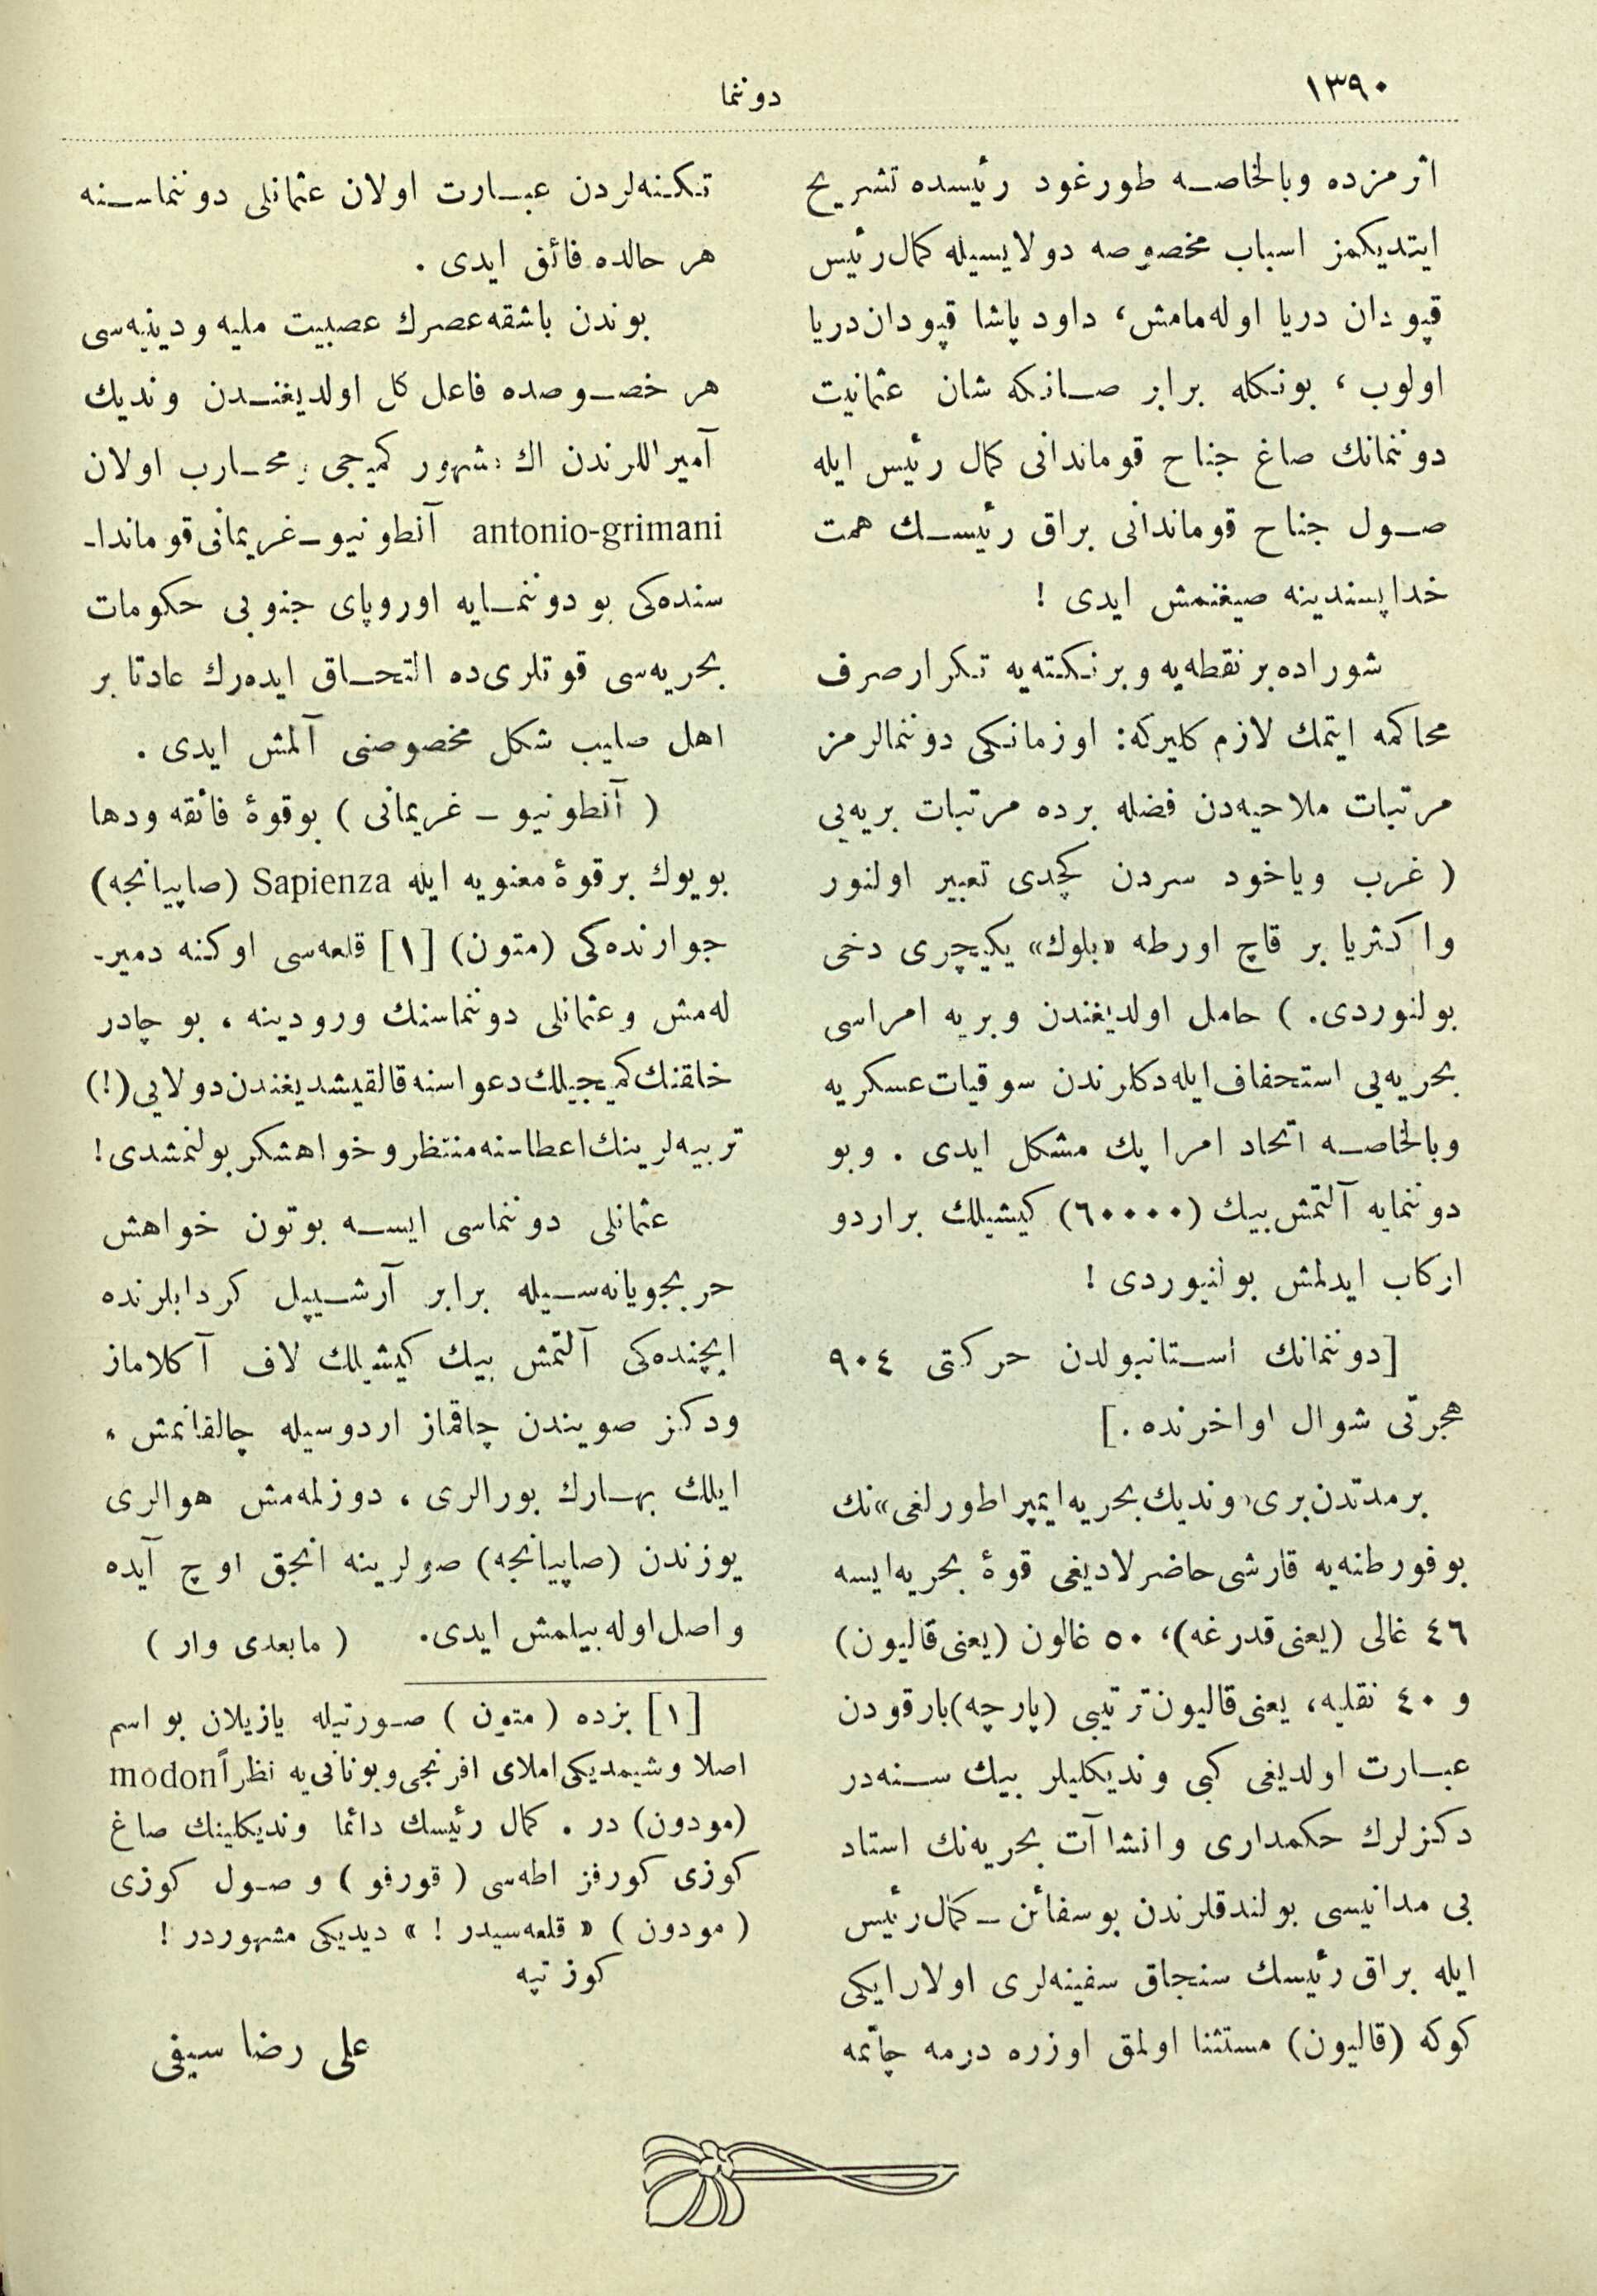 ١٣٩٠
دوننما
اثرمزده وبالخاصه طورغود رئیسده تشریح
ایتدیکمز اسباب مخصوصه دولایسیله کمال رئیس
قپودان دریا اوله‌مامش، داود پاشا قپودان دریا
اولوب، بونکله برابر صانکه شان عثمانیت
دوننمانك صاغ جناح قوماندانی کمال رئیس ایله
صول جناح قوماندانی براق رئیسك همت
خداپسندینه صیغنمش ایدی !
شوراده بر نقطه‌یه وبر نکته‌یه تکرار صرف
محاکمه ایتمك لازم کلیرکه: اوزمانکی دوننمالرمز
مرتبات ملاحیه‌دن فضله برده مرتبات بریه‌یی
( غرب ویاخود سردن کچدی تعبیر اولنور
واکثریا بر قاچ اورطه «بلوك» یکیچری دخی
بولنوردی. ) حامل اولدیغندن وبریه امراسی
بحریه‌یی استحفاف ایله‌دکلرندن سوقیات عسکریه
وبالخاصه اتحاد امرا پك مشکل ایدی . وبو
دوننمایه آلتمش بیك (٦٠٠٠٠) کیشیلك بر اردو
ارکاب ایدلمش بولنیوردی !
[دوننمانك استانبولدن حرکتی ٩٠٤
هجرتی شوال اواخرنده .]
بر مدتدن بری «وندیك بحریه ایمپراطورلغی» نك
بو فورطنه‌یه قارشی حاضرلادیغی قوۀ بحریه ایسه
٤٦ غالی (یعنی قدرغه)، ٥٠ غالون (یعنی قالیون)
و ٤٠ نقلیه، یعنی قالیون ترتیبی (پارچه) بارقودن
عبارت اولدیغی کبی وندیکلیلر بیك سنه‌در
دکزلرك حکمداری وانشاآت بحریه‌نك استاد
بی مدانیسی بولندقلرندن بو سفائن ـ کمال رئیس
ایله براق رئیسك سنجاق سفینه‌لری اولان ایکی
کوکه (قالیون) مستثنا اولمق اوزره درمه چاتمه
تکنه‌لردن عبارت اولان عثمانلی دوننماسنه
هر حالده فائق ایدی .
بوندن باشقه عصرك عصبیت ملیه ودینیه‌سی
هر خصوصده فاعل کل اولدیغندن وندیك
آمیراللرندن اك مشهور کمیجی، محارب اولان
antonio-grimani آنطونیو ـ غریمانی قوماندا-
سنده‌کی بو دوننمایه اوروپای جنوبی حکومات
بحریه‌سی قوتلری ده التحاق ایده‌رك عادتا بر
اهل صلیب شکل مخصوصنی آلمش ایدی .
( آنطونیو ـ غریمانی ) بو قوۀ فائقه ودها
بویوك بر قوۀ معنویه ایله Sapienza (صاپیانجه)
جوارنده‌کی (متون) [١] قلعه‌سی اوکنه دمیر-
له‌مش وعثمانلی دوننماسنك ورودینه ، بو چادر
خلقنك کمیجیلك دعواسنه قالقیشدیغندن دولایی (!)
تربیه‌لرینك اعطاسنه منتظر وخواهشکر بولنمشدی !
عثمانلی دوننماسی ایسه بوتون خواهش
حربجویانه‌سیله برابر آرشیپل کردابلرنده
ایچنده‌کی آلتمش بیك کیشیلك لاف آکلاماز
ودکز صویندن چاقماز اردوسیله چالقانمش ،
ایلك بهارك بورالری ، دوزلمه‌مش هوالری
یوزندن (صاپیانجه) صولرینه انجق اوچ آیده
واصل اوله‌بیلمش ایدی. ( مابعدی وار )
[١] بزده ( متون ) صورتیله یازیلان بو اسم
اصلا وشیمدیکی املای افرنجی ویونانی‌یه نظراً modon
(مودون) در . کمال رئیسك دائما وندیکلینك صاغ
کوزی کورفز اطه‌سی ( قورفو ) وصول کوزی
( مودون ) « قلعه‌سیدر ! » دیدیکی مشهوردر !
کوز تپه
علی رضا سیفی